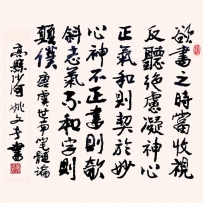 欲書之時當收視
反聽絕慮凝神心
正氣和則契於妙
心神不正書則欹
斜志氣不和字則
顛仆 唐虞世南筆髓論
縣沙河 姚文 書